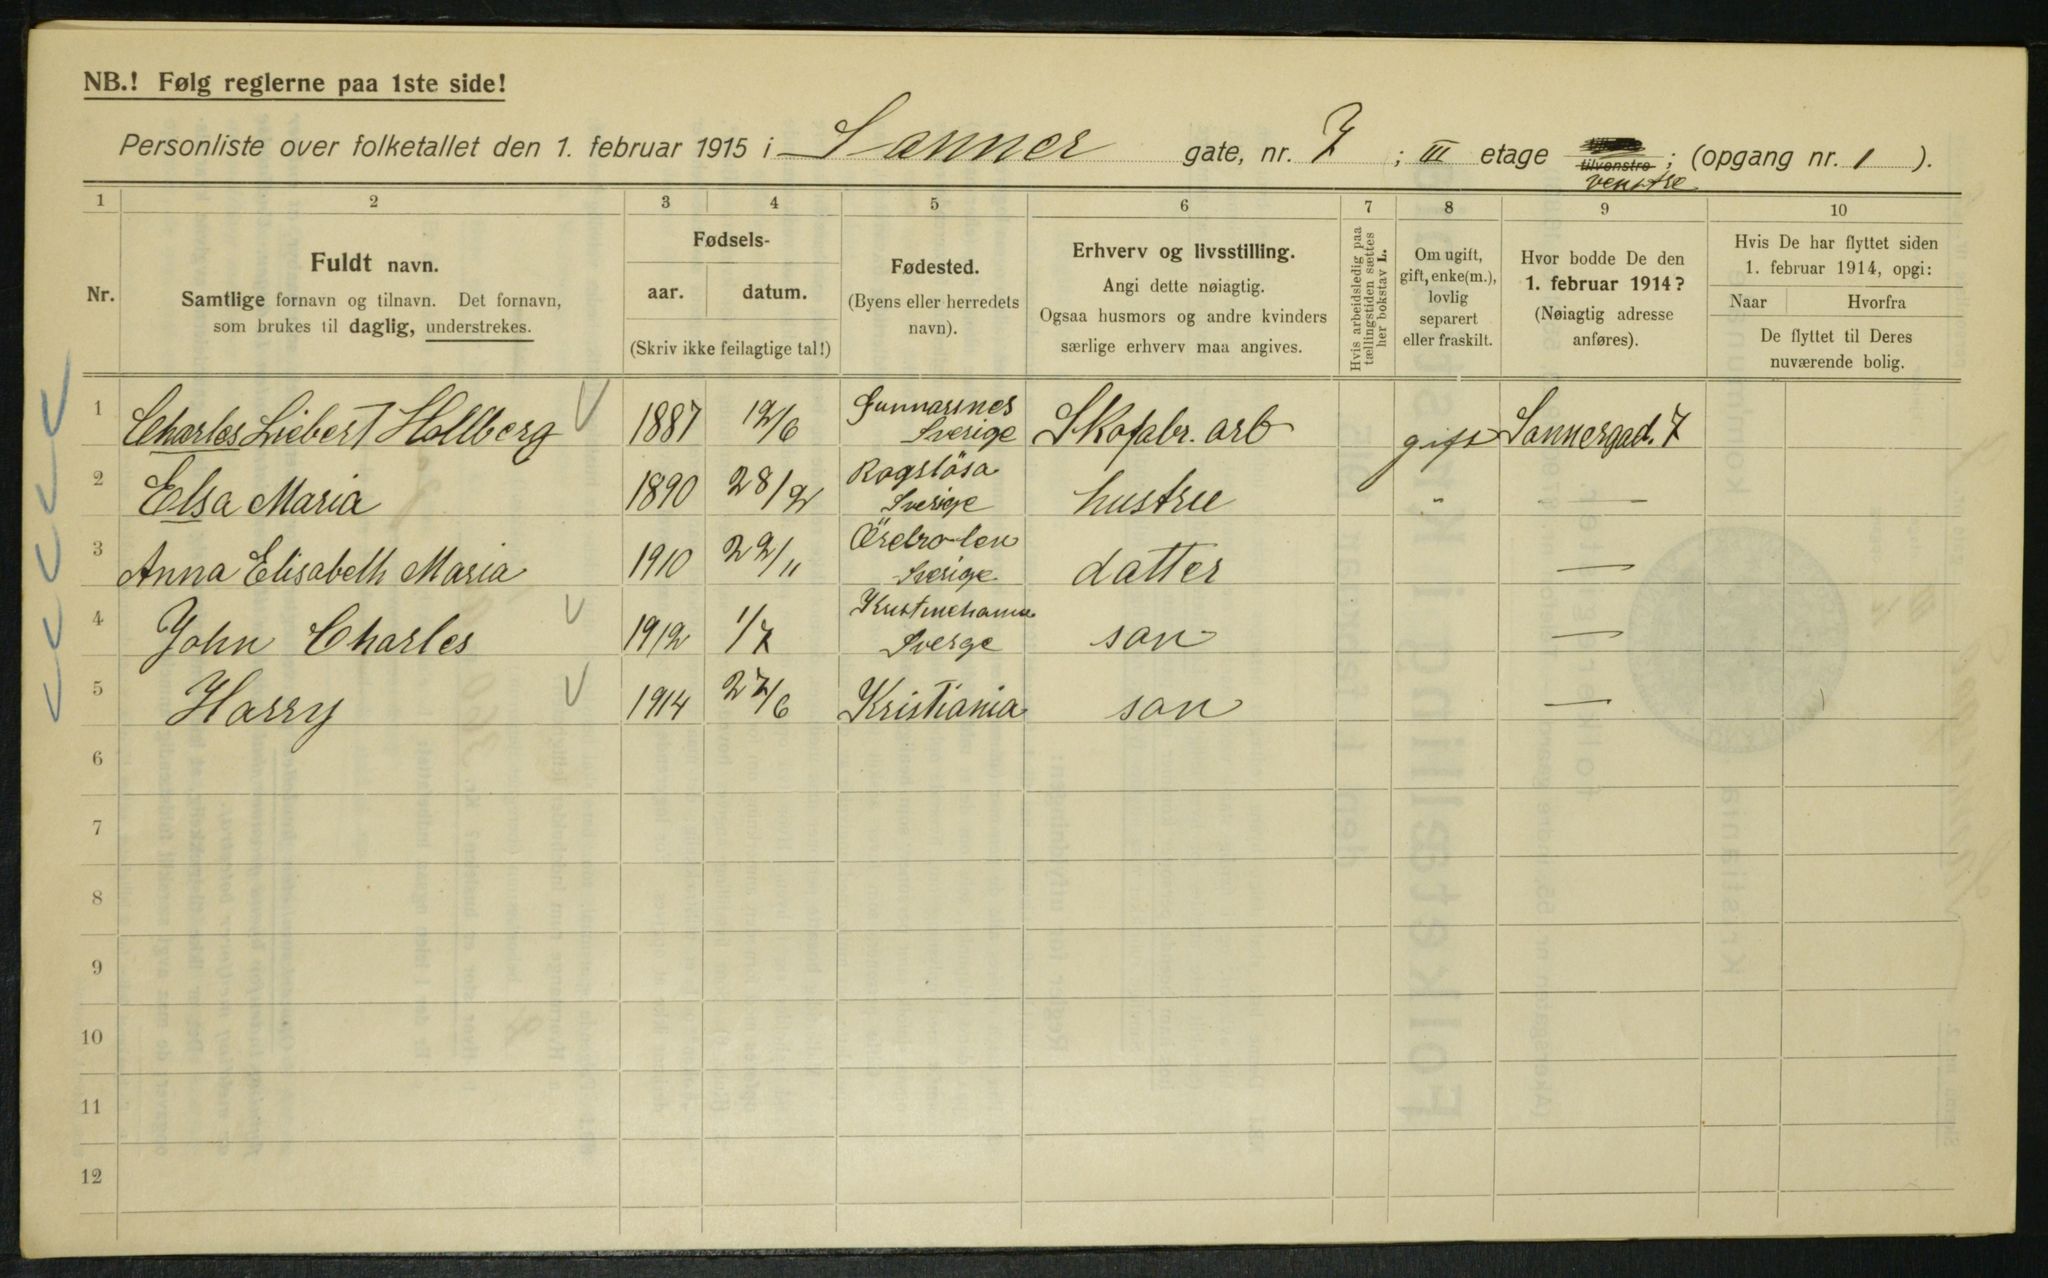 NB.! Følg reglerne paa 1ste side!
Personliste over folketallet den 1. februar 1915 i Sanner gate, nr. 7 ; III etage tilvenstre ; (opgang nr. 1 ).
venstre
1 2 3 4 5 6 7 8 9 10
Nr.
Fuldt navn.
Samtlige fornavn og tilnavn. Det fornavn,
som brukes til daglig, understrekes.
Fødsels-
aar. datum.
(Skriv ikke feilagtige tal!)
Fødested.
(Byens eller herredets
navn).
Erhverv og livsstilling.
Angi dette nøiagtig.
Ogsaa husmors og andre kvinders
særlige erhverv maa angives.
Hvis arbeidsledig paa
tællingstiden sættes
her bokstav L.
Om ugift,
gift, enke(m.),
lovlig
separert
eller fraskilt.
Hvor bodde De den
1. februar 1914?
(Nøiagtig adresse
anføres).
Hvis De har flyttet siden
1. februar 1914, opgi:
Naar Hvorfra
De flyttet til Deres
nuværende bolig.
1 Charles Liebert Hollberg 1887 12/6 Gunnarsnes Sverige Skofabr. arb gift Sannergad. 7
2 Elsa Maria 1890 28/2 Rogslösa Sverige hustru " —
3 Anna Elisabeth Maria 1910 22/11 Örebro len Sverige datter —
4 John Charles 1912 1/7 Kristinehamn Sverge son —
5 Harry 1914 27/6 Kristiania son —
6
7
8
9
10
11
12